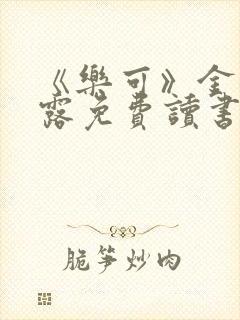 《樂可》金
露免費讀書
脆笋炒肉